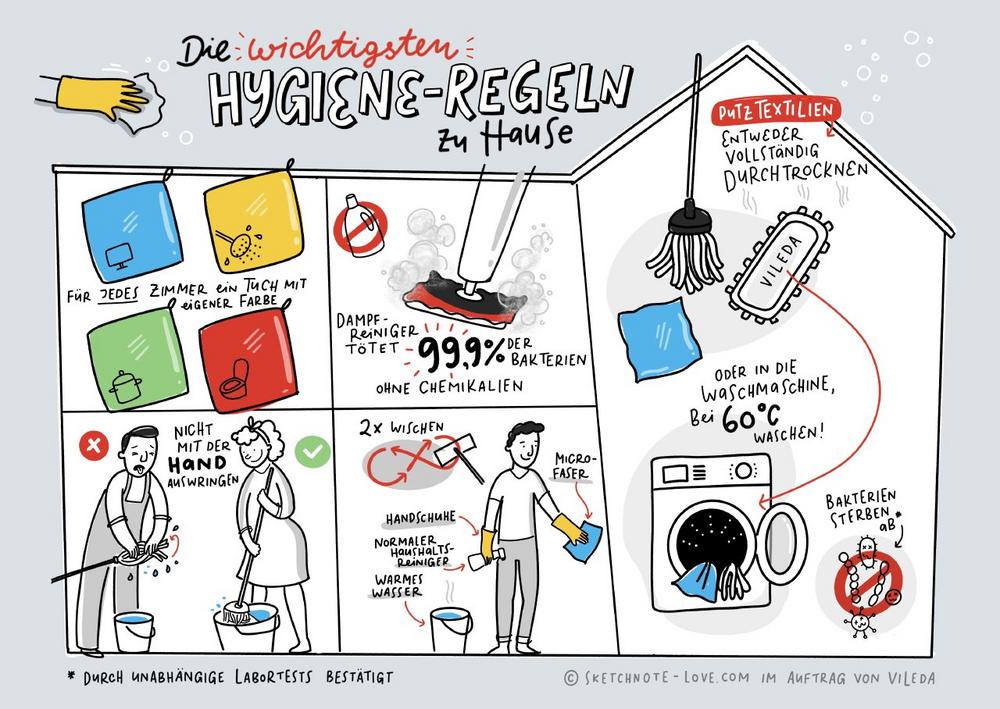 Die wichtigsten
HYGIENE-REGELN
zu Hause
FÜR JEDES ZIMMER ein TUCH MIT
eigener FARBE
DAMPF-
Reiniger
TÖTET
99,9% DER
BAKTERIEN
OHNE CHEMIKALIEN
NICHT
MIT DER
HAND
AUSWRINGEN
2x WISCHEN
MICRO-
FASER
HANDSCHUHE
NORMALER
HAUSHALTS-
REINIGER
WARMES
WASSER
PUTZTEXTILIEN
ENTWEDER
VOLLSTÄNDIG
DURCHTROCKNEN
VILEDA
ODER IN DIE
WASCHMASCHINE,
Bei 60°C
WASCHEN!
BAKTERIEN
STERBEN
aB*
* DURCH UNABHÄNGIGE LABORTESTS BESTÄTIGT
© SKETCHNOTE-LOVE.COM IM AUFTRAG VON VILEDA